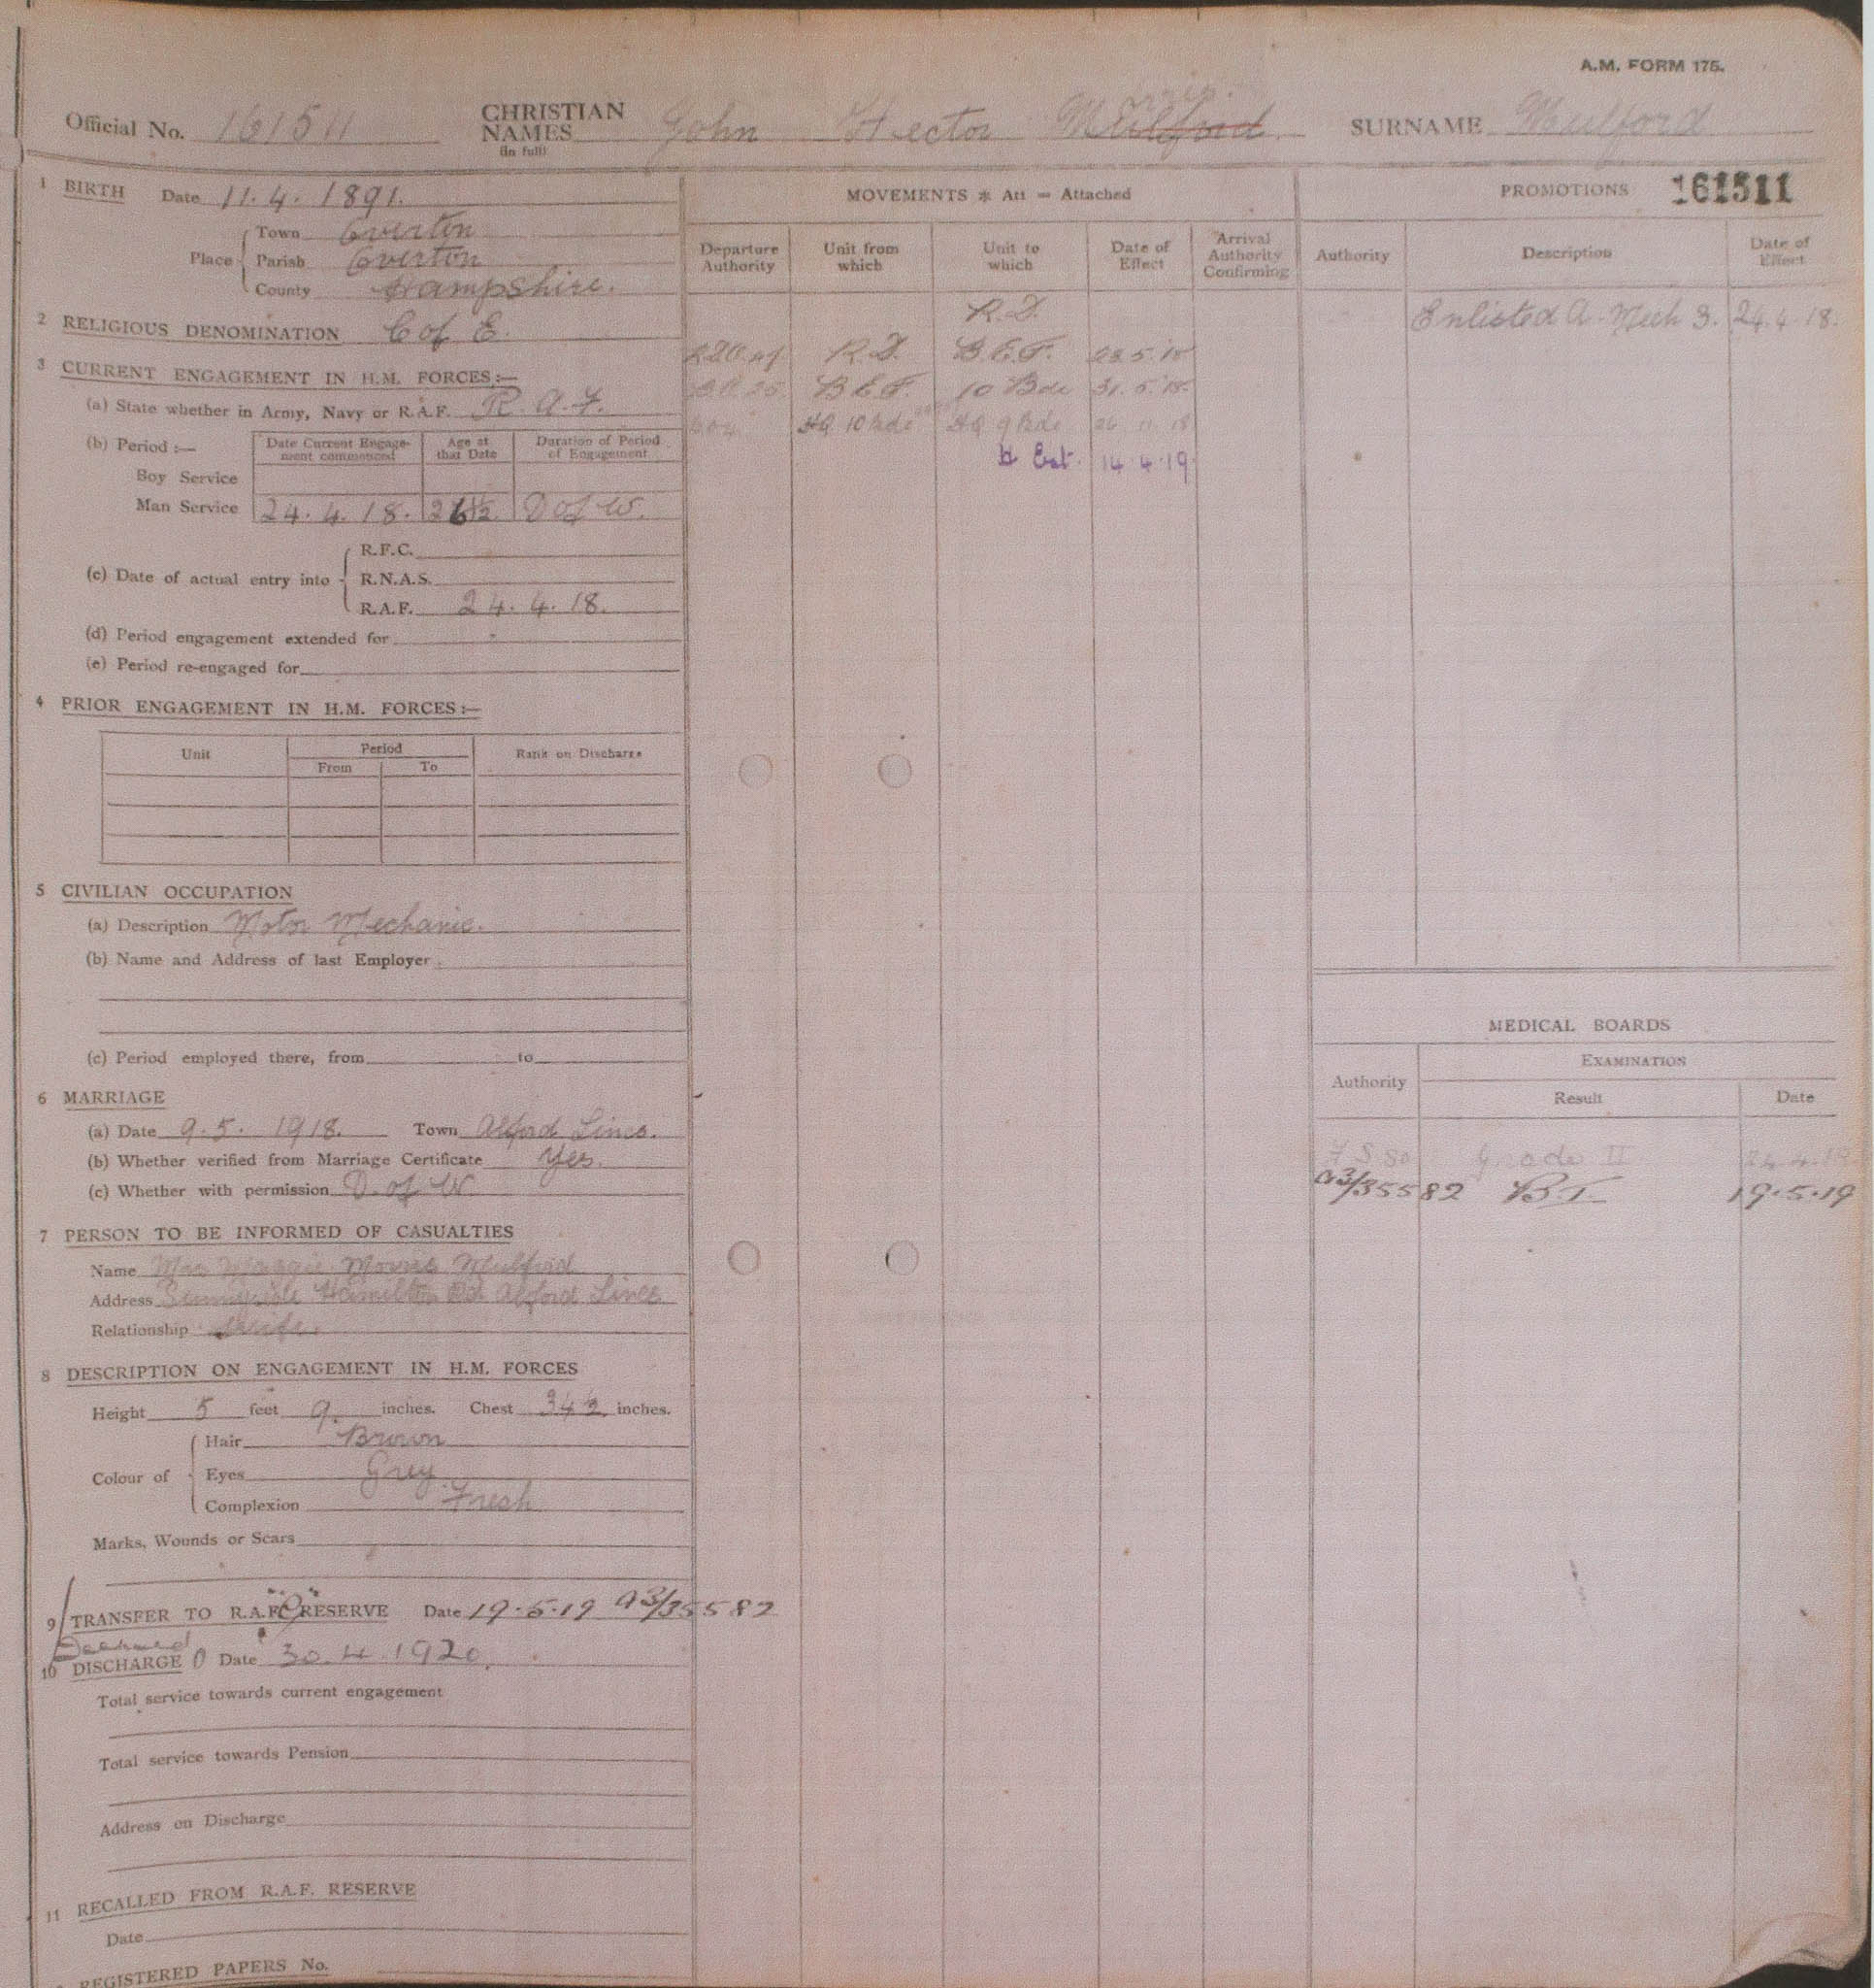 A.M. FORM 175.
Official No. 161511 CHRISTIAN NAMES (in full) John Hector Morris Mulford SURNAME Mulford
1 BIRTH Date 11.4.1891.
Place Town Everton
Parish Everton
County Hampshire.
2 RELIGIOUS DENOMINATION C of E.
3 CURRENT ENGAGEMENT IN H.M. FORCES:—
(a) State whether in Army, Navy or R.A.F. R.A.F.
(b) Period:— Date Current Engagement commenced Age at that Date Duration of Period of Engagement
Boy Service
Man Service 24.4.18. D of W.
(c) Date of actual entry into R.F.C.
R.N.A.S.
R.A.F. 24.4.18.
(d) Period engagement extended for
(e) Period re-engaged for
4 PRIOR ENGAGEMENT IN H.M. FORCES:—
Unit Period Rank on Discharge
From To
5 CIVILIAN OCCUPATION
(a) Description Motor Mechanic.
(b) Name and Address of last Employer
(c) Period employed there, from to
6 MARRIAGE
(a) Date 9.5.1918. Town Alford Lincs.
(b) Whether verified from Marriage Certificate Yes.
(c) Whether with permission D. of W
7 PERSON TO BE INFORMED OF CASUALTIES
Name Mrs Maggie Morris Mulford
Address Sunnyside Hamilton Rd Alford Lincs
Relationship Wife.
8 DESCRIPTION ON ENGAGEMENT IN H.M. FORCES
Height 5 feet 9. inches. Chest 34½ inches.
Colour of Hair Brown
Eyes Grey.
Complexion Fresh
Marks, Wounds or Scars
9 TRANSFER TO R.A.F. "G" RESERVE Date 19.5.19 a3/35582
Deemed
10 DISCHARGED Date 30.4.1920.
Total service towards current engagement
Total service towards Pension
Address on Discharge
11 RECALLED FROM R.A.F. RESERVE
Date
REGISTERED PAPERS No.
MOVEMENTS * Att = Attached
Departure Authority Unit from which Unit to which Date of Effect Arrival Authority Confirming
R.D.
R.D. B.E.F. 28.5.18
B.E.F. 10 Bde 31.5.18
HQ 10 Bde HQ 9 Bde 26 11 18
H Est. 14.4.19
PROMOTIONS 161511
Authority Description Date of Effect
Enlisted A. Mech 3. 24.4.18.
MEDICAL BOARDS
Authority EXAMINATION
Result Date
Grade II 24.4.18
a3/35582 BI 19.5.19